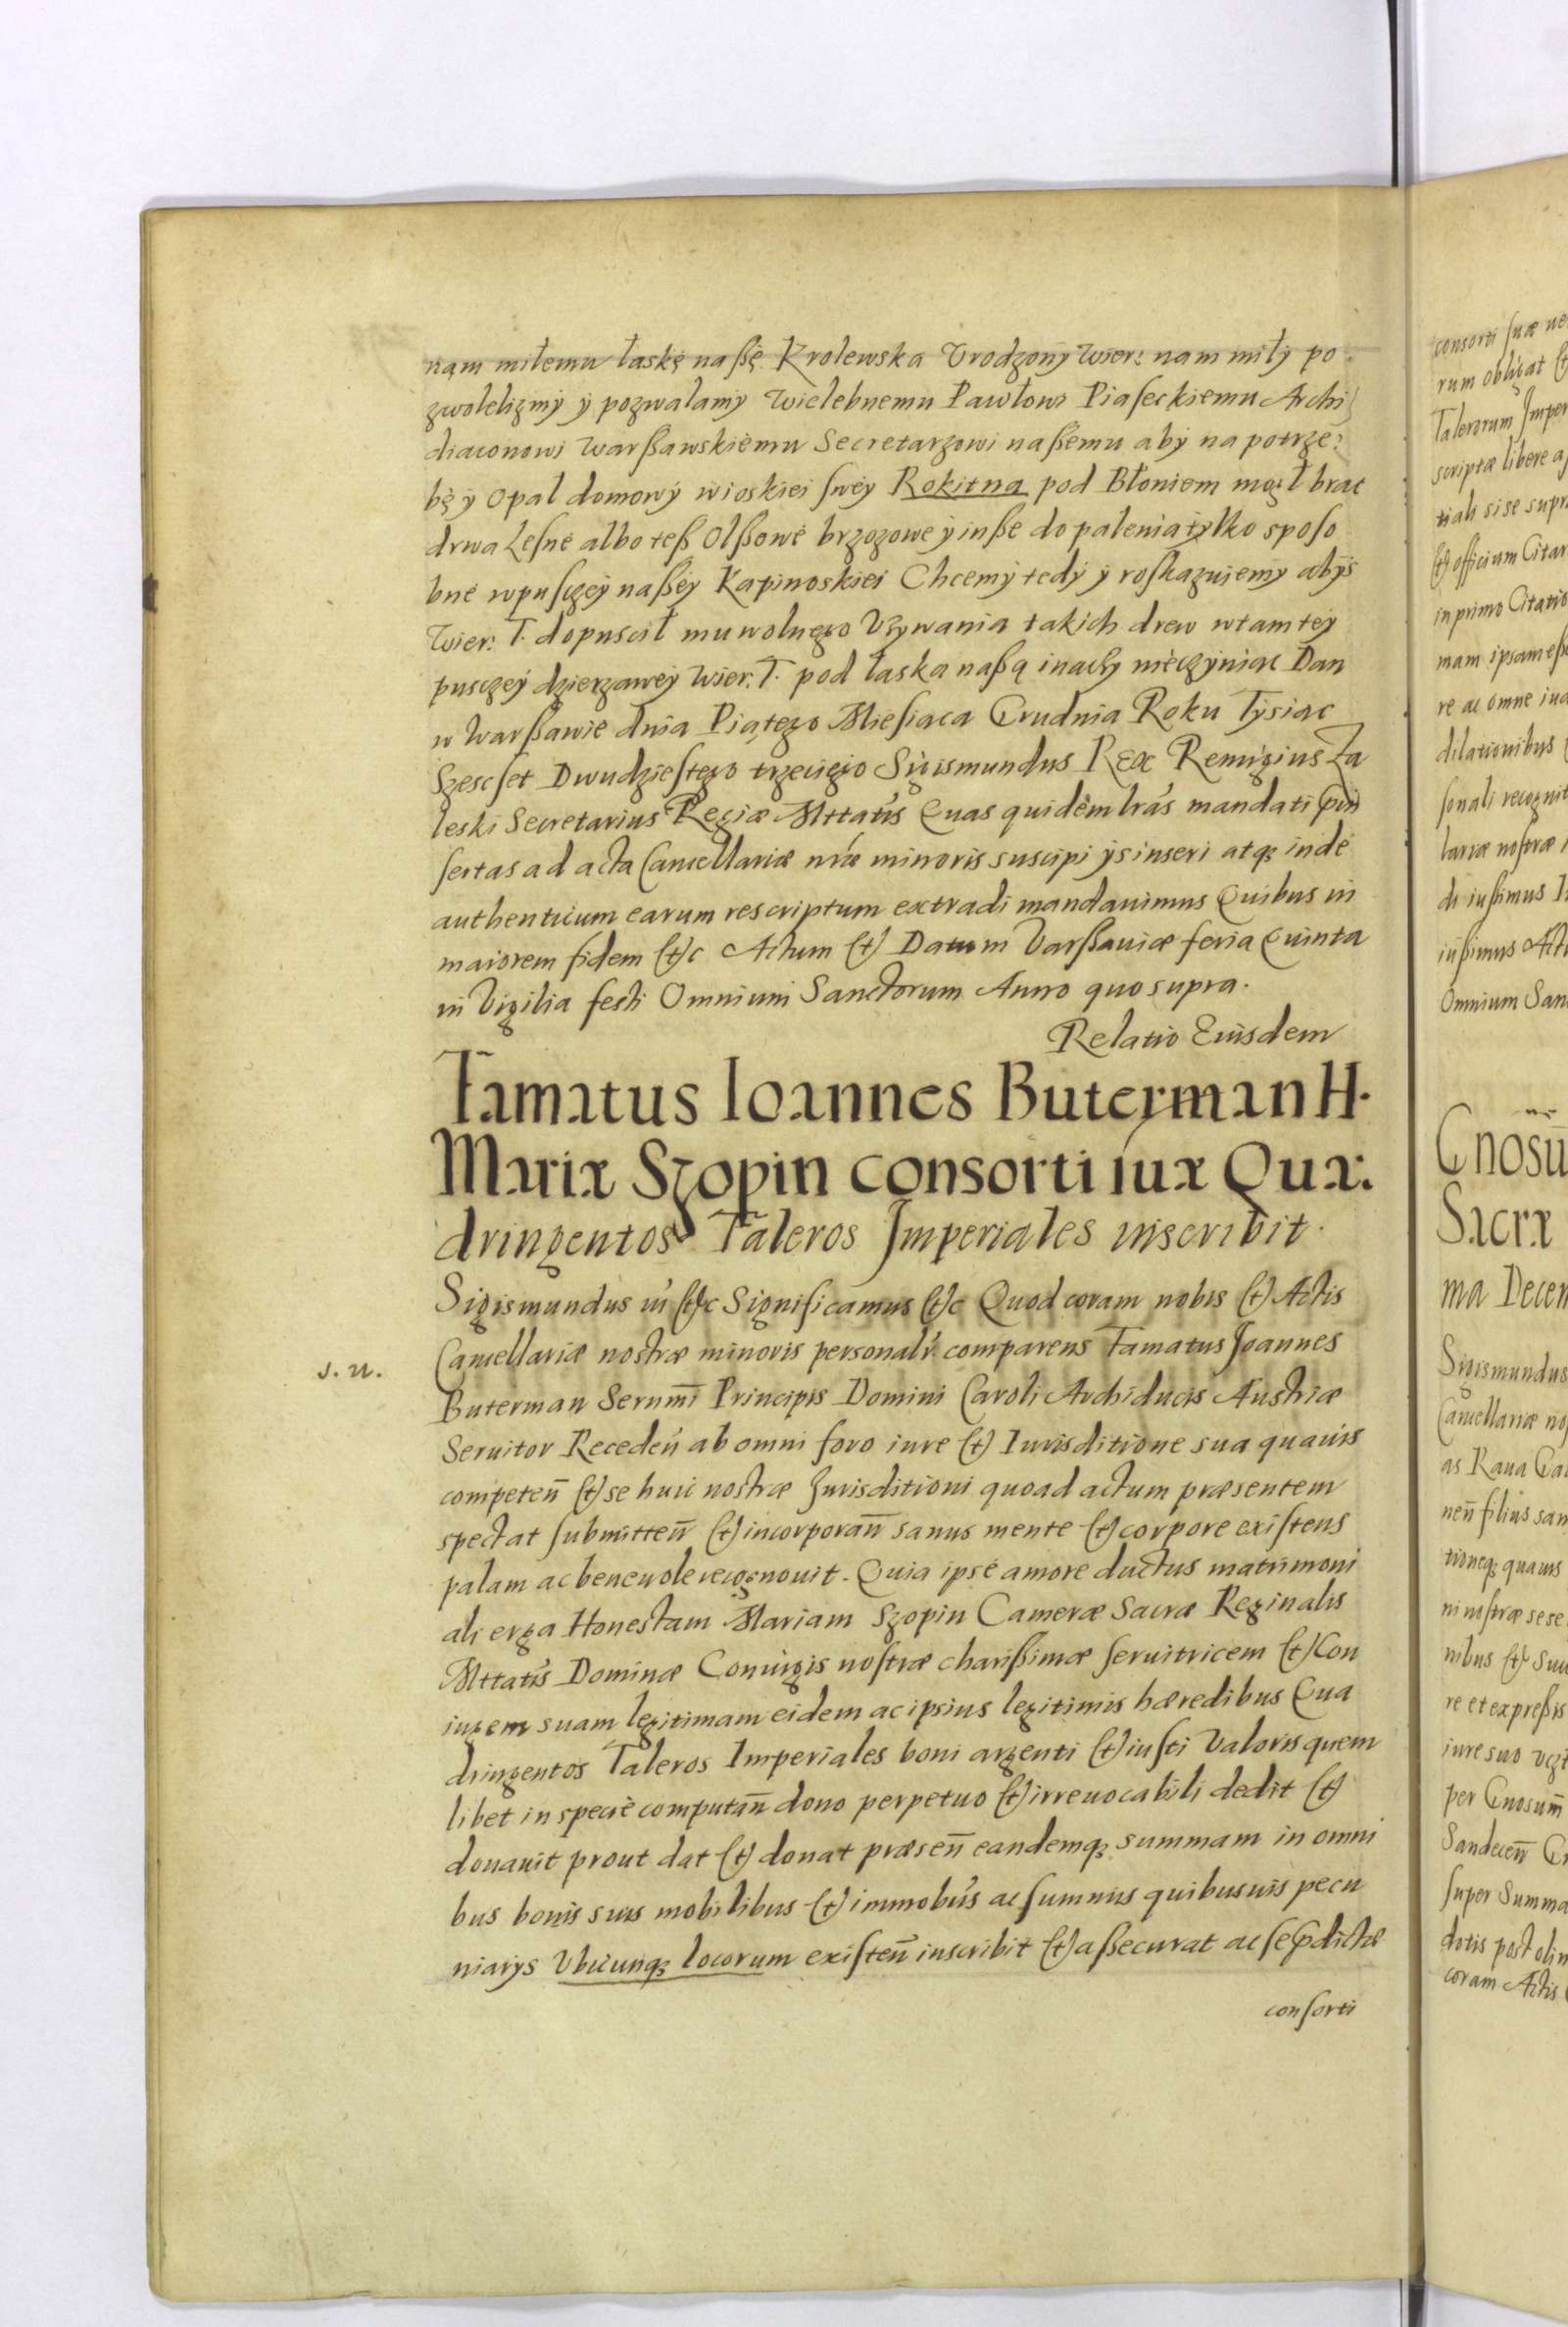 nąm miłemu łaskę naßę Krolewska Vrodzony Wier: nam miły po
zwolelizmy ÿ pozwalamÿ Wielebnemu Pawłowi Piaseckiemu Archi
diaconowi Warßawskiemu Secretarzowi naßemu aby na potrze:
bę ÿ opał domowÿ wioskiei swey Rokitna pod Błoniem mogł brać
drwa Lesne albo teß Olßowe brzozowe ÿ inße do palenia tylko sposo
bne wpusczeÿ naßeÿ Kapinoskiei Chcemÿ tedÿ ÿ roskazujemy abÿs
Wier: T. dopuscił mu wolnego Vzywania takich drew wtamteÿ
pusczeÿ dzierzaweÿ Wier: T. pod łaska naßą inaczy nieczÿniąc Dan
w Warßawie dnia Piątego Miesiaca Grudnia Roku Tÿsiąc
Szescset Dwudziestego trzeciego Sigismundus Rex Remigius Za
leski Secretarius Regiæ Mttatis Quas quidem lras mandati pin
sertas ad acta Cancellariæ nræ minoris suscipi ÿs inseri atq; inde
authenticum earum rescriptum extradi mandauimus Quibus in
maiorem fidem (et)c Actum (et) Datum Varßauiæ feria Quinta
in Vigilia festi Omnium Sanctorum Anno quo supra.
Relatio Eiusdem
Famatus Ioannes Buterman H.
Mariæ Szopin consorti suæ Qua:
dringentos Taleros Imperiales inscribit.
Sigismundus iii (et)c Significamus (et)c Quod coram nobis (et) Actis
J. n.
Cancellariæ nostræ minoris personalr comparens Famatus Joannes
Buterman Serenmi Principis Domini Caroli Archiducis Austriæ
Seruitor Receden ab omni foro iure (et) Iurisditione sua quauis
competen (et) se huic nostræ Jurisditioni quoad actum præsentem
spectat submitten (et) incorporan sanus mente (et) corpore existens
palam ac beneuole recognouit. Quia ipse amore ductus matrimoni
ali erga Honestam Mariam Szopin Cameræ Sacræ Reginalis
Mttatis Dominæ Coniugis nostræ charißimæ seruitricem (et) Con
iugem suam legitimam eidem ac ipsius legitimis hæredibus Qua
dringentos Taleros Imperiales boni argenti (et) iusti valoris quem
libet in specie computan dono perpetuo (et) irreuocabili dedit (et)
donauit prout dat (et) donat præsen eandemq; summam in omni
bus bonis suis mobilibus (et) immobus ac summis quibusuis pecu
niarys Vbicunq; locorum existen inscribit (et) aßecurat ac se pdictæ
consorti
consorti suæ
rum obligat
Talerorum Imper
scriptæ libere
tiali si se supr
(et) officium Citar
in primo Citatio
mam ipsam
re ac omne iu
dilationibus
sonali recognit
lariæ nostræ
di iußimus
iußimus Act
Omnium San
Gnosu
Sacræ
ma Decem
Sigismundus
Cancellariæ no
as Raua Ca
nen filius san
tioneq; quauis
ni nostræ sese
nibus (et)
re et expreßis
iure suo
per Gnosum
Sandecen
super Summa
dotis post olim
coram Actis